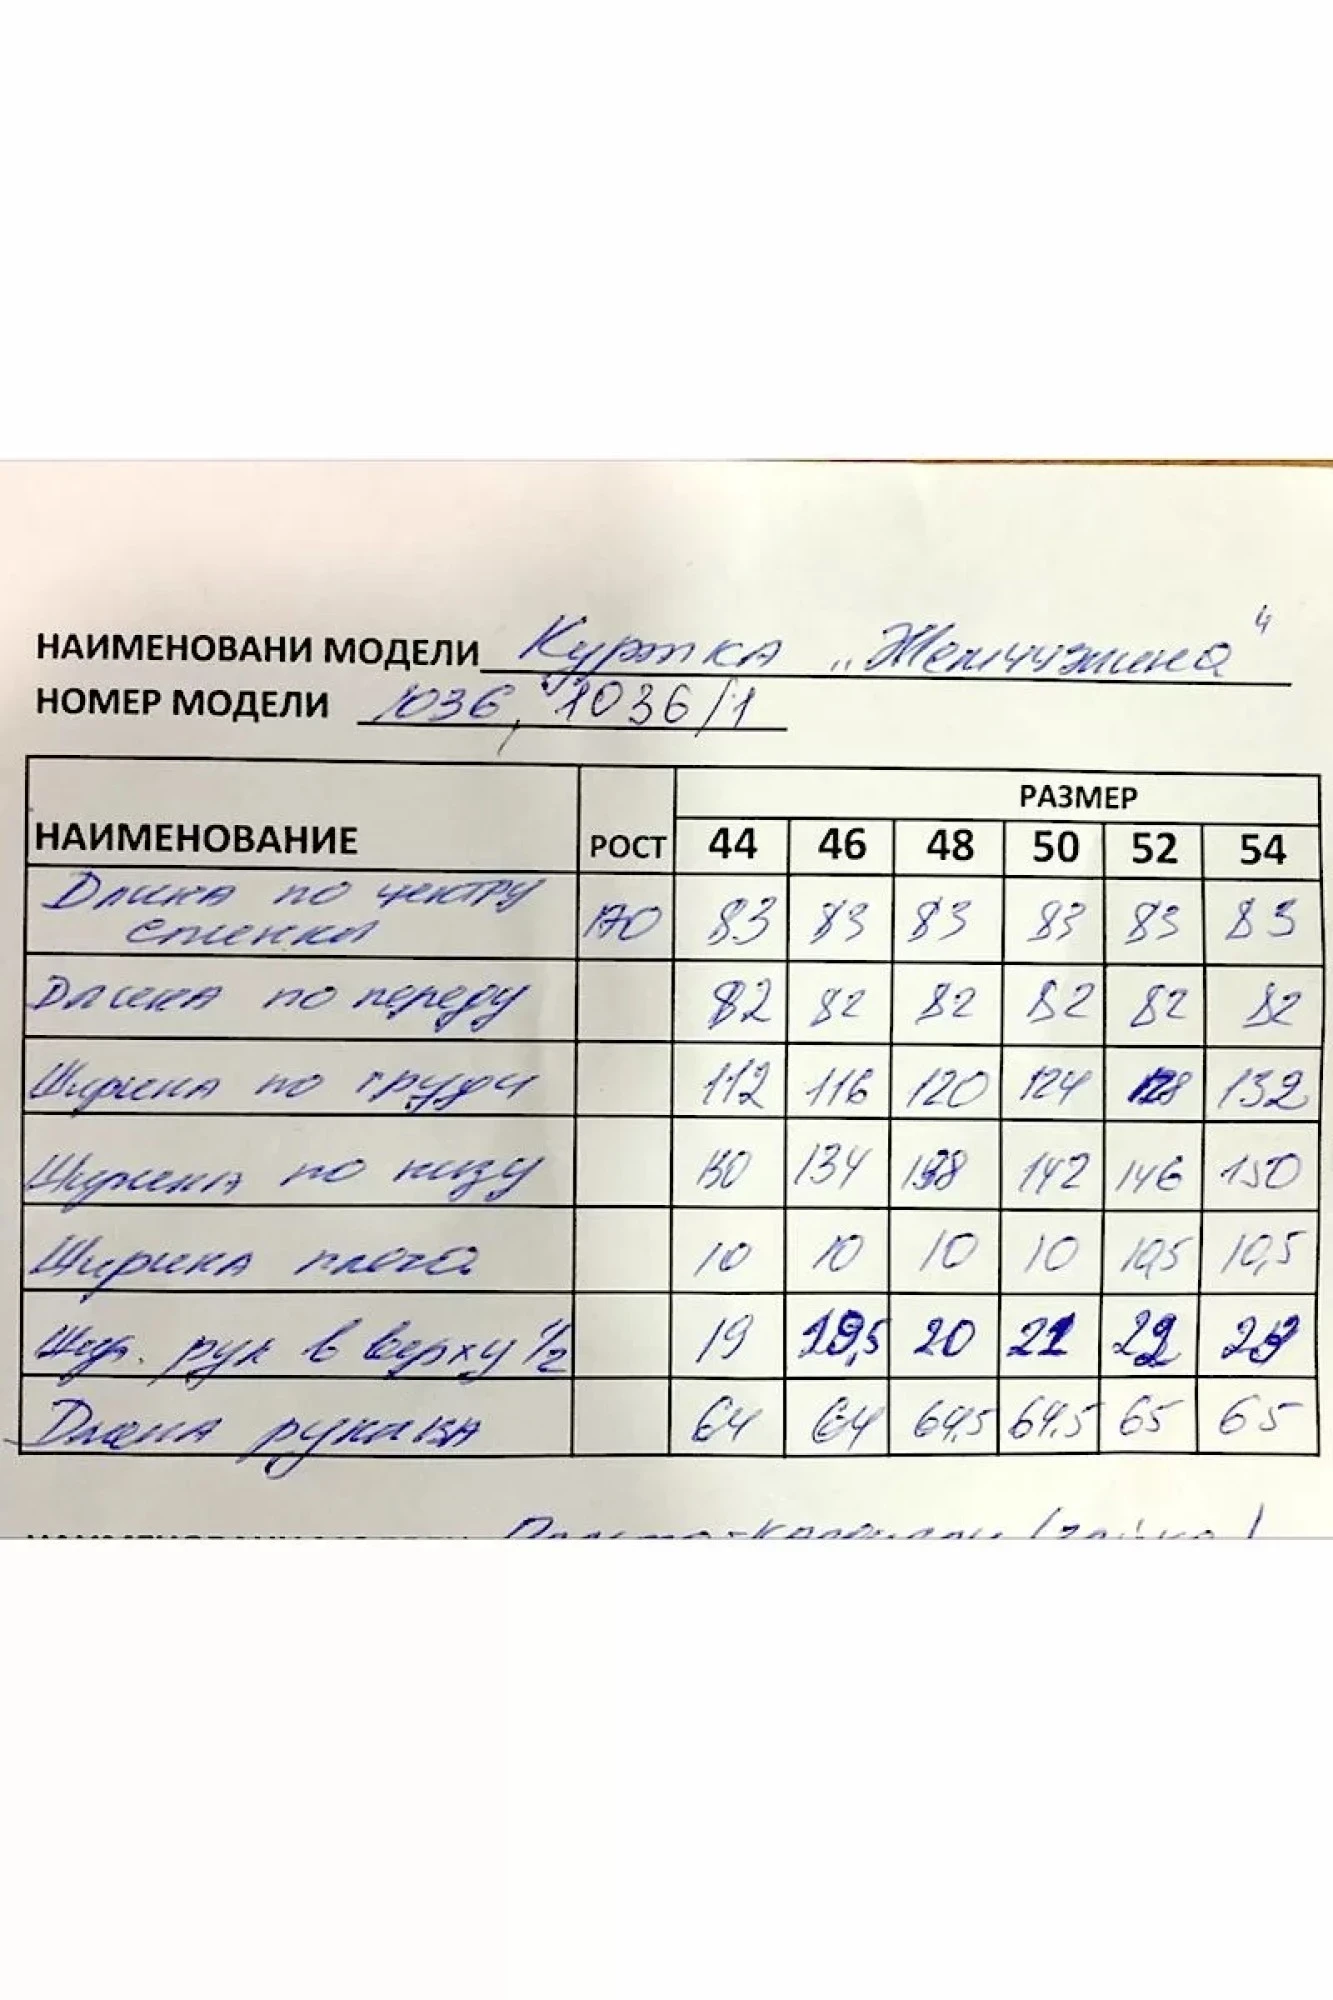 НАИМЕНОВАНИ МОДЕЛИ Куртка „Жемчужина“
НОМЕР МОДЕЛИ 1036, 1036/1
НАИМЕНОВАНИЕ РОСТ РАЗМЕР
44 46 48 50 52 54
Длина по центру
спинки 170 83 83 83 83 83 83
Длина по переду 82 82 82 82 82 82
Ширина по груди 112 116 120 124 128 132
Ширина по низу 130 134 138 142 146 150
Ширина плеча 10 10 10 10 10,5 10,5
Шир. рук в верху 1/2 19 19,5 20 21 22 23
Длина рукава 64 64 64,5 64,5 65 65